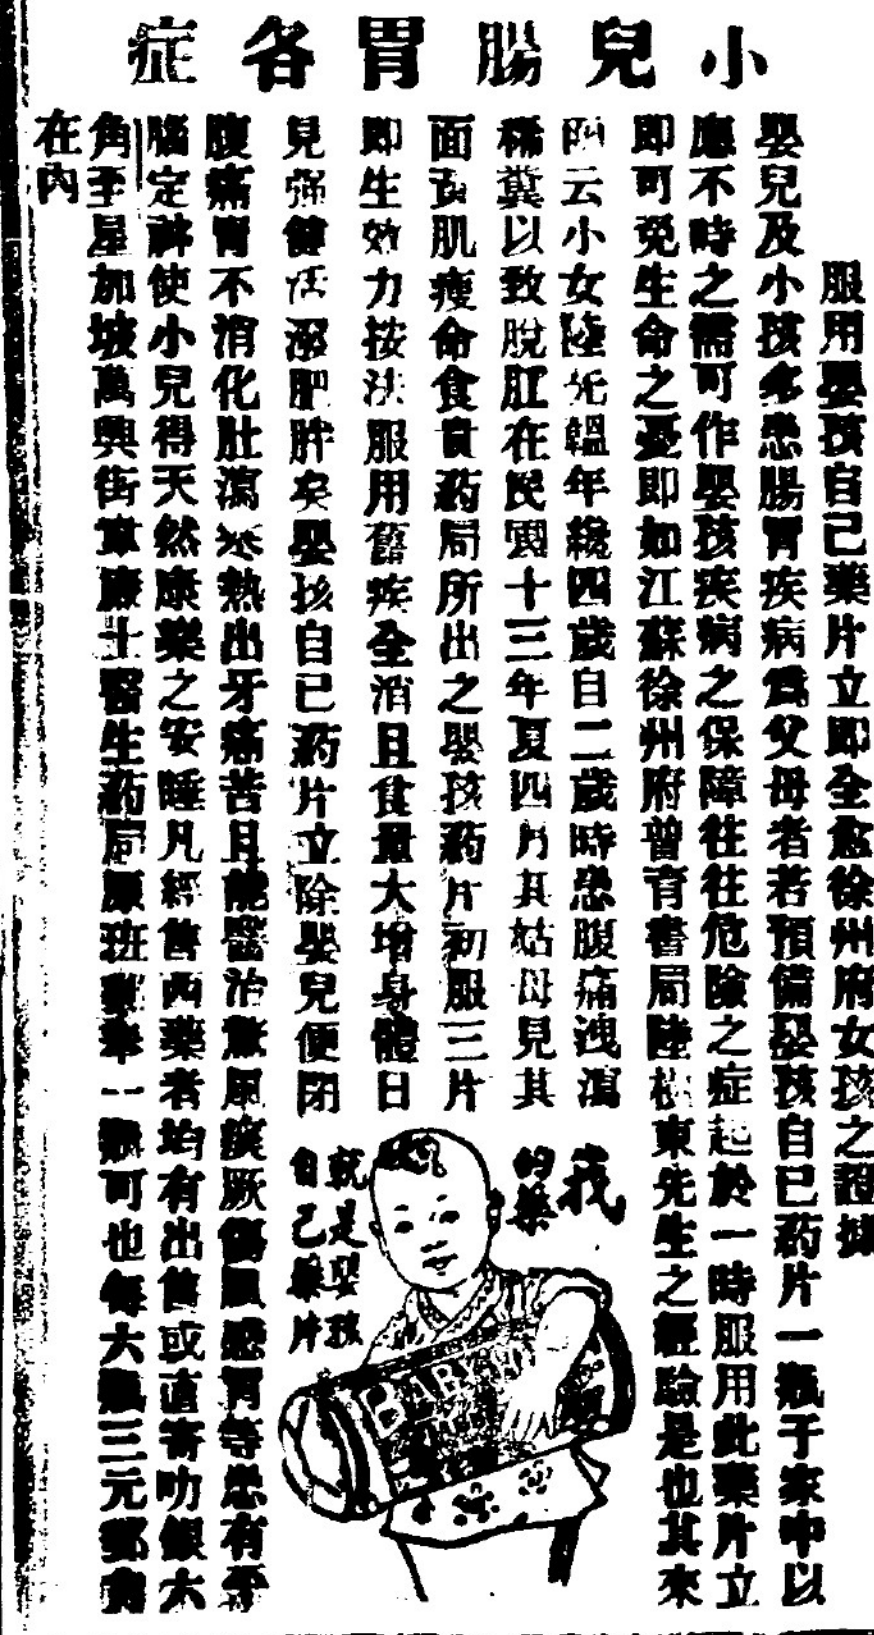 小兒腸胃各症
服用嬰孩自己藥片立即全愈徐州府女孩之證據
嬰兒及小孩多患腸胃疾病爲父母者若預備嬰孩自已葯片一瓶于家中以
應不時之需可作嬰孩疾病之保障往往危險之症起於一時服用此藥片立
即可免生命之憂即如江蘇徐州府普育書局陸東先生之經驗是也其來
函云小女陸韞年纔四歲自二歲時患腹痛洩瀉
稀糞以致脫肛在民國十三年夏四月其姑母見其
面黃肌瘦命食貴葯局所出之嬰孩葯片初服三片
即生效力按法服用舊疾全消且食量大增身體日
見強健活潑肥胖矣嬰孩自已葯片立除嬰兒便閉
腹痛胃不消化肚瀉寒熱出牙痛苦且能醫治驚風痰厥傷風感胃等患有
腦定神使小兒得天然康樂之安睡凡經售西藥者均有出售或直寄叻銀大
角至星加坡萬興街韋廉士醫生葯局原班一瓶可也每六瓶三元郵費
在內
我
的藥
就是嬰孩
自己藥片
BABY